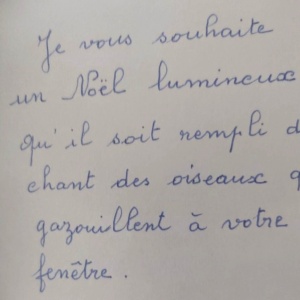 Je vous souhaite
un Noël lumineux
qu'il soit rempli d
chant des oiseaux q
gazouillent à votre
fenêtre.